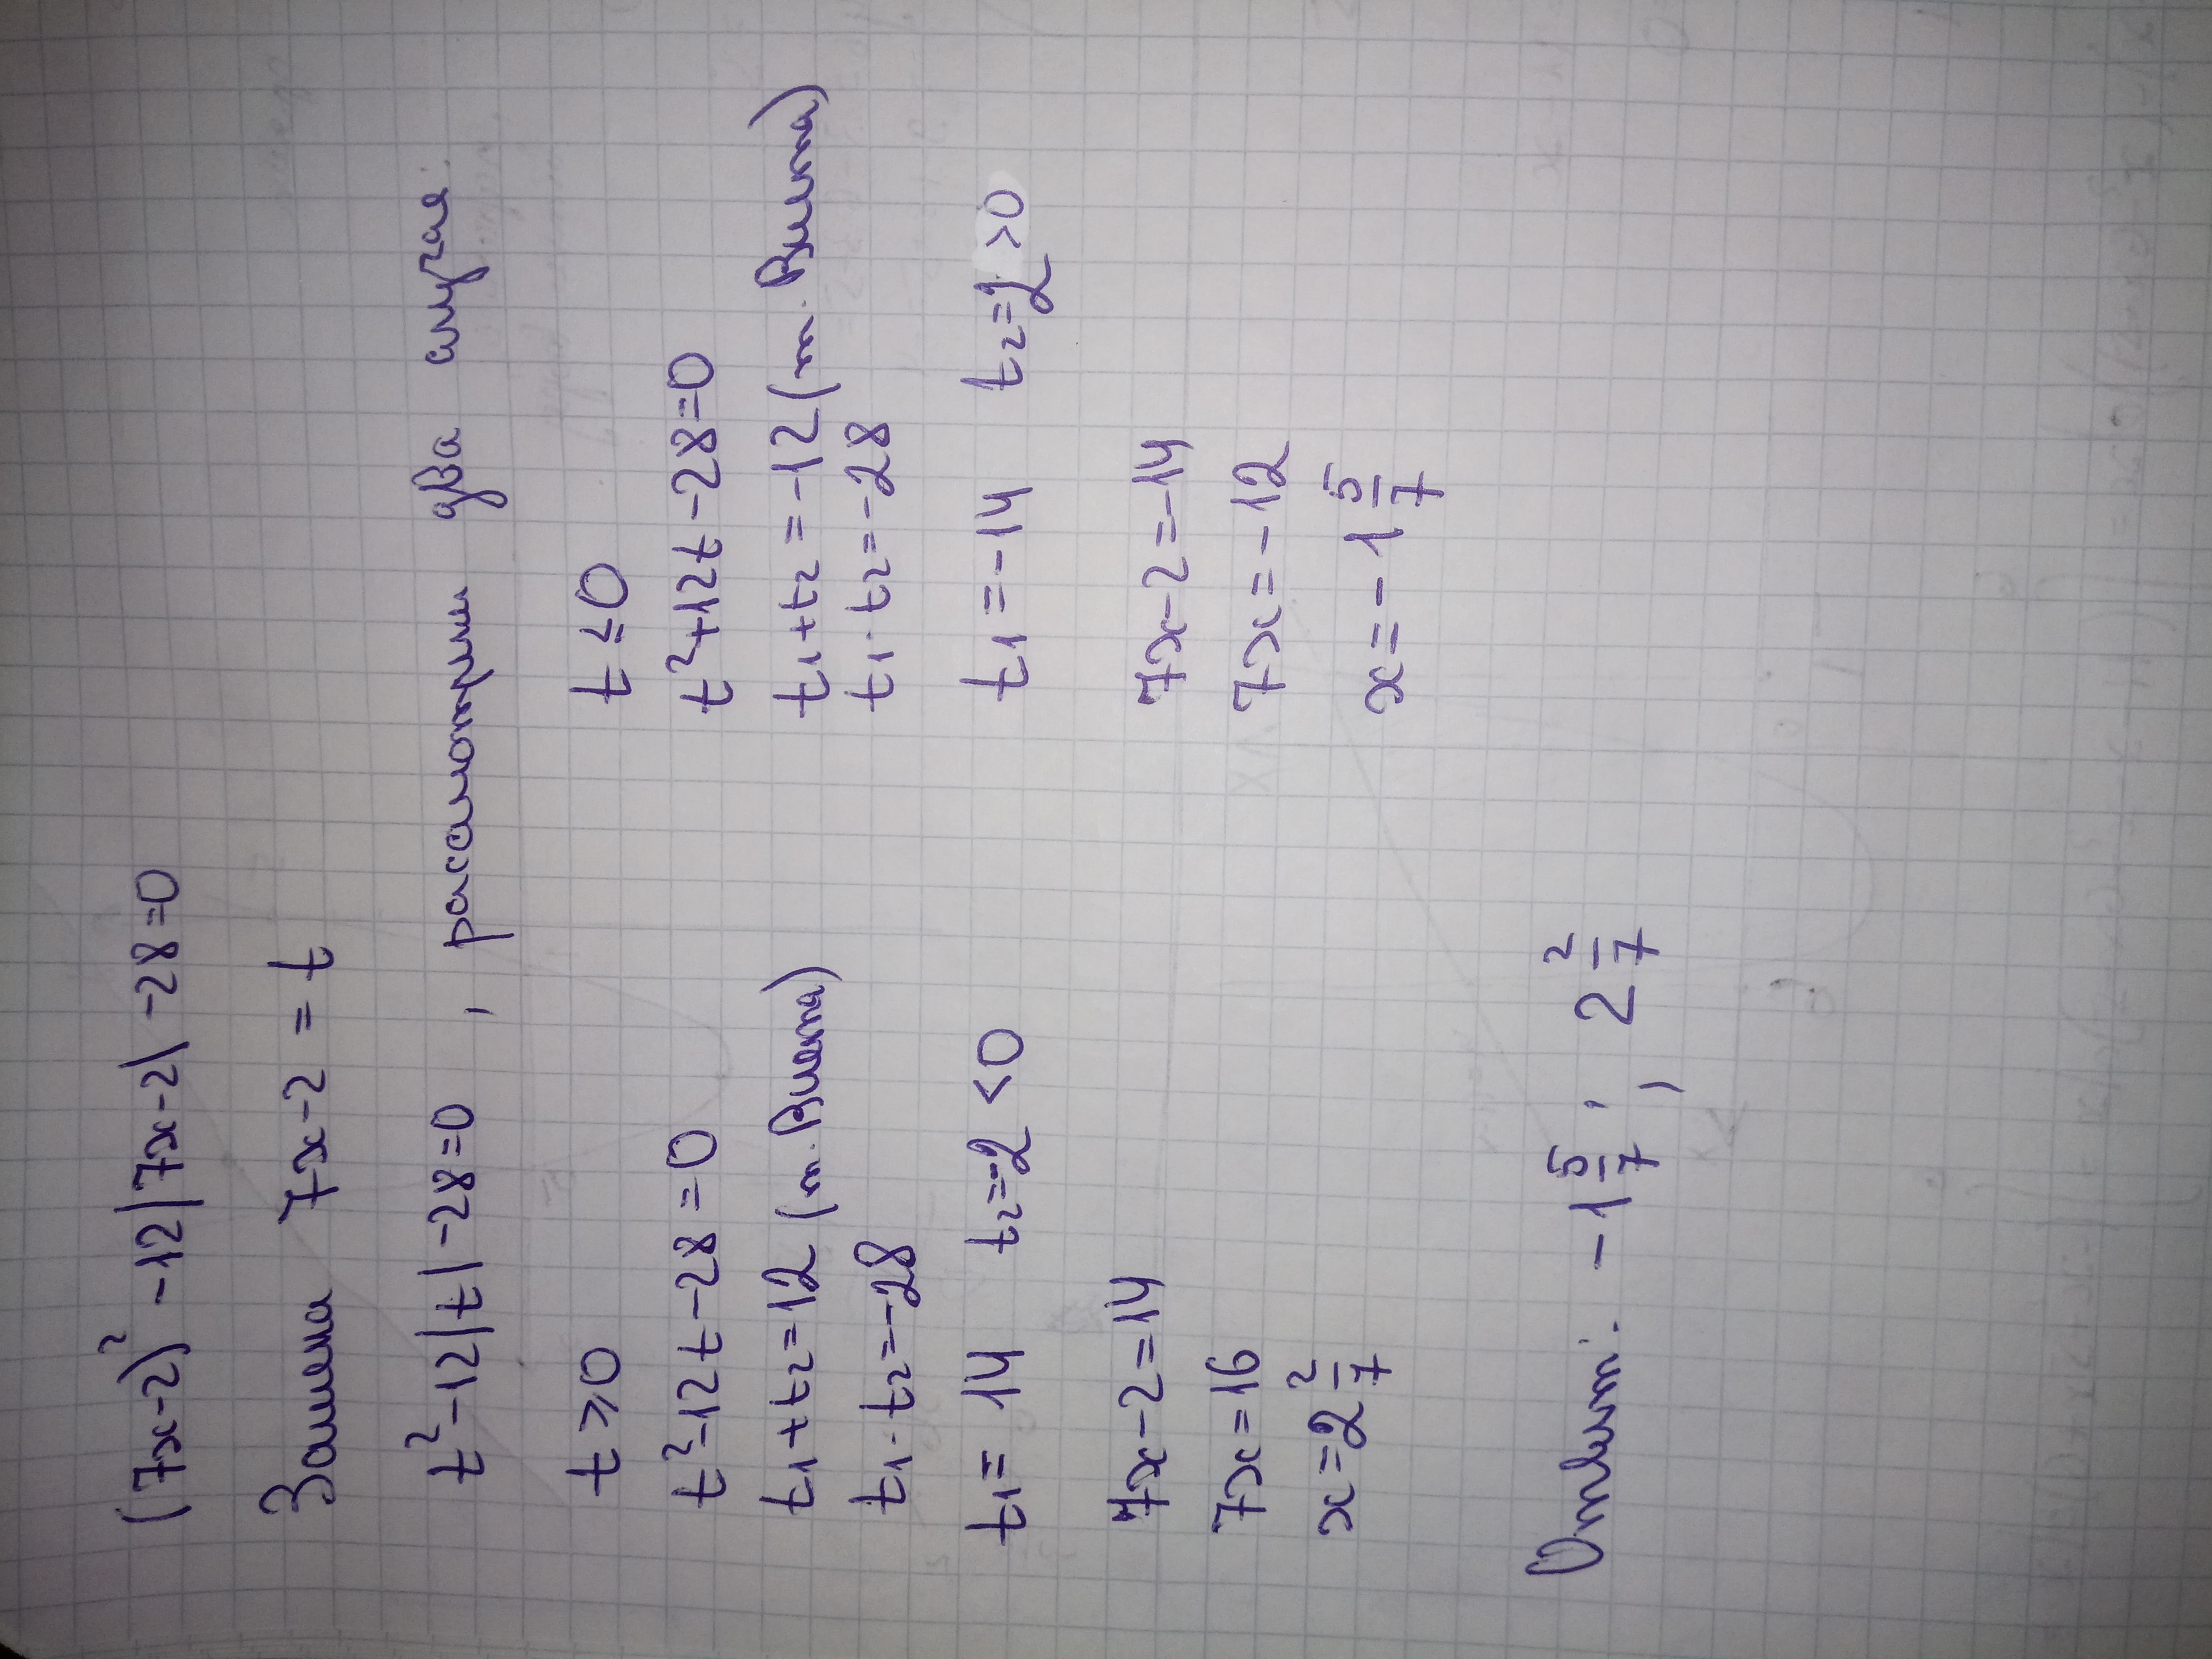 (7x-2)² -12|7x-2| -28=0
Замена 7x-2 = t
t²-12|t| -28=0 , рассмотрим два случая:
t ⩾ 0
t²-12t-28=0
t₁+t₂=12 (т. Виета)
t₁·t₂=-28
t₁= 14 t₂=-2 <0
7x-2=14
7x=16
x=2 2/7
t ≤ 0
t²+12t-28=0
t₁+t₂=-12 (т. Виета)
t₁·t₂=-28
t₁=-14 t₂=2 >0
7x-2=-14
7x=-12
x=-1 5/7
Ответ: -1 5/7 ; 2 2/7